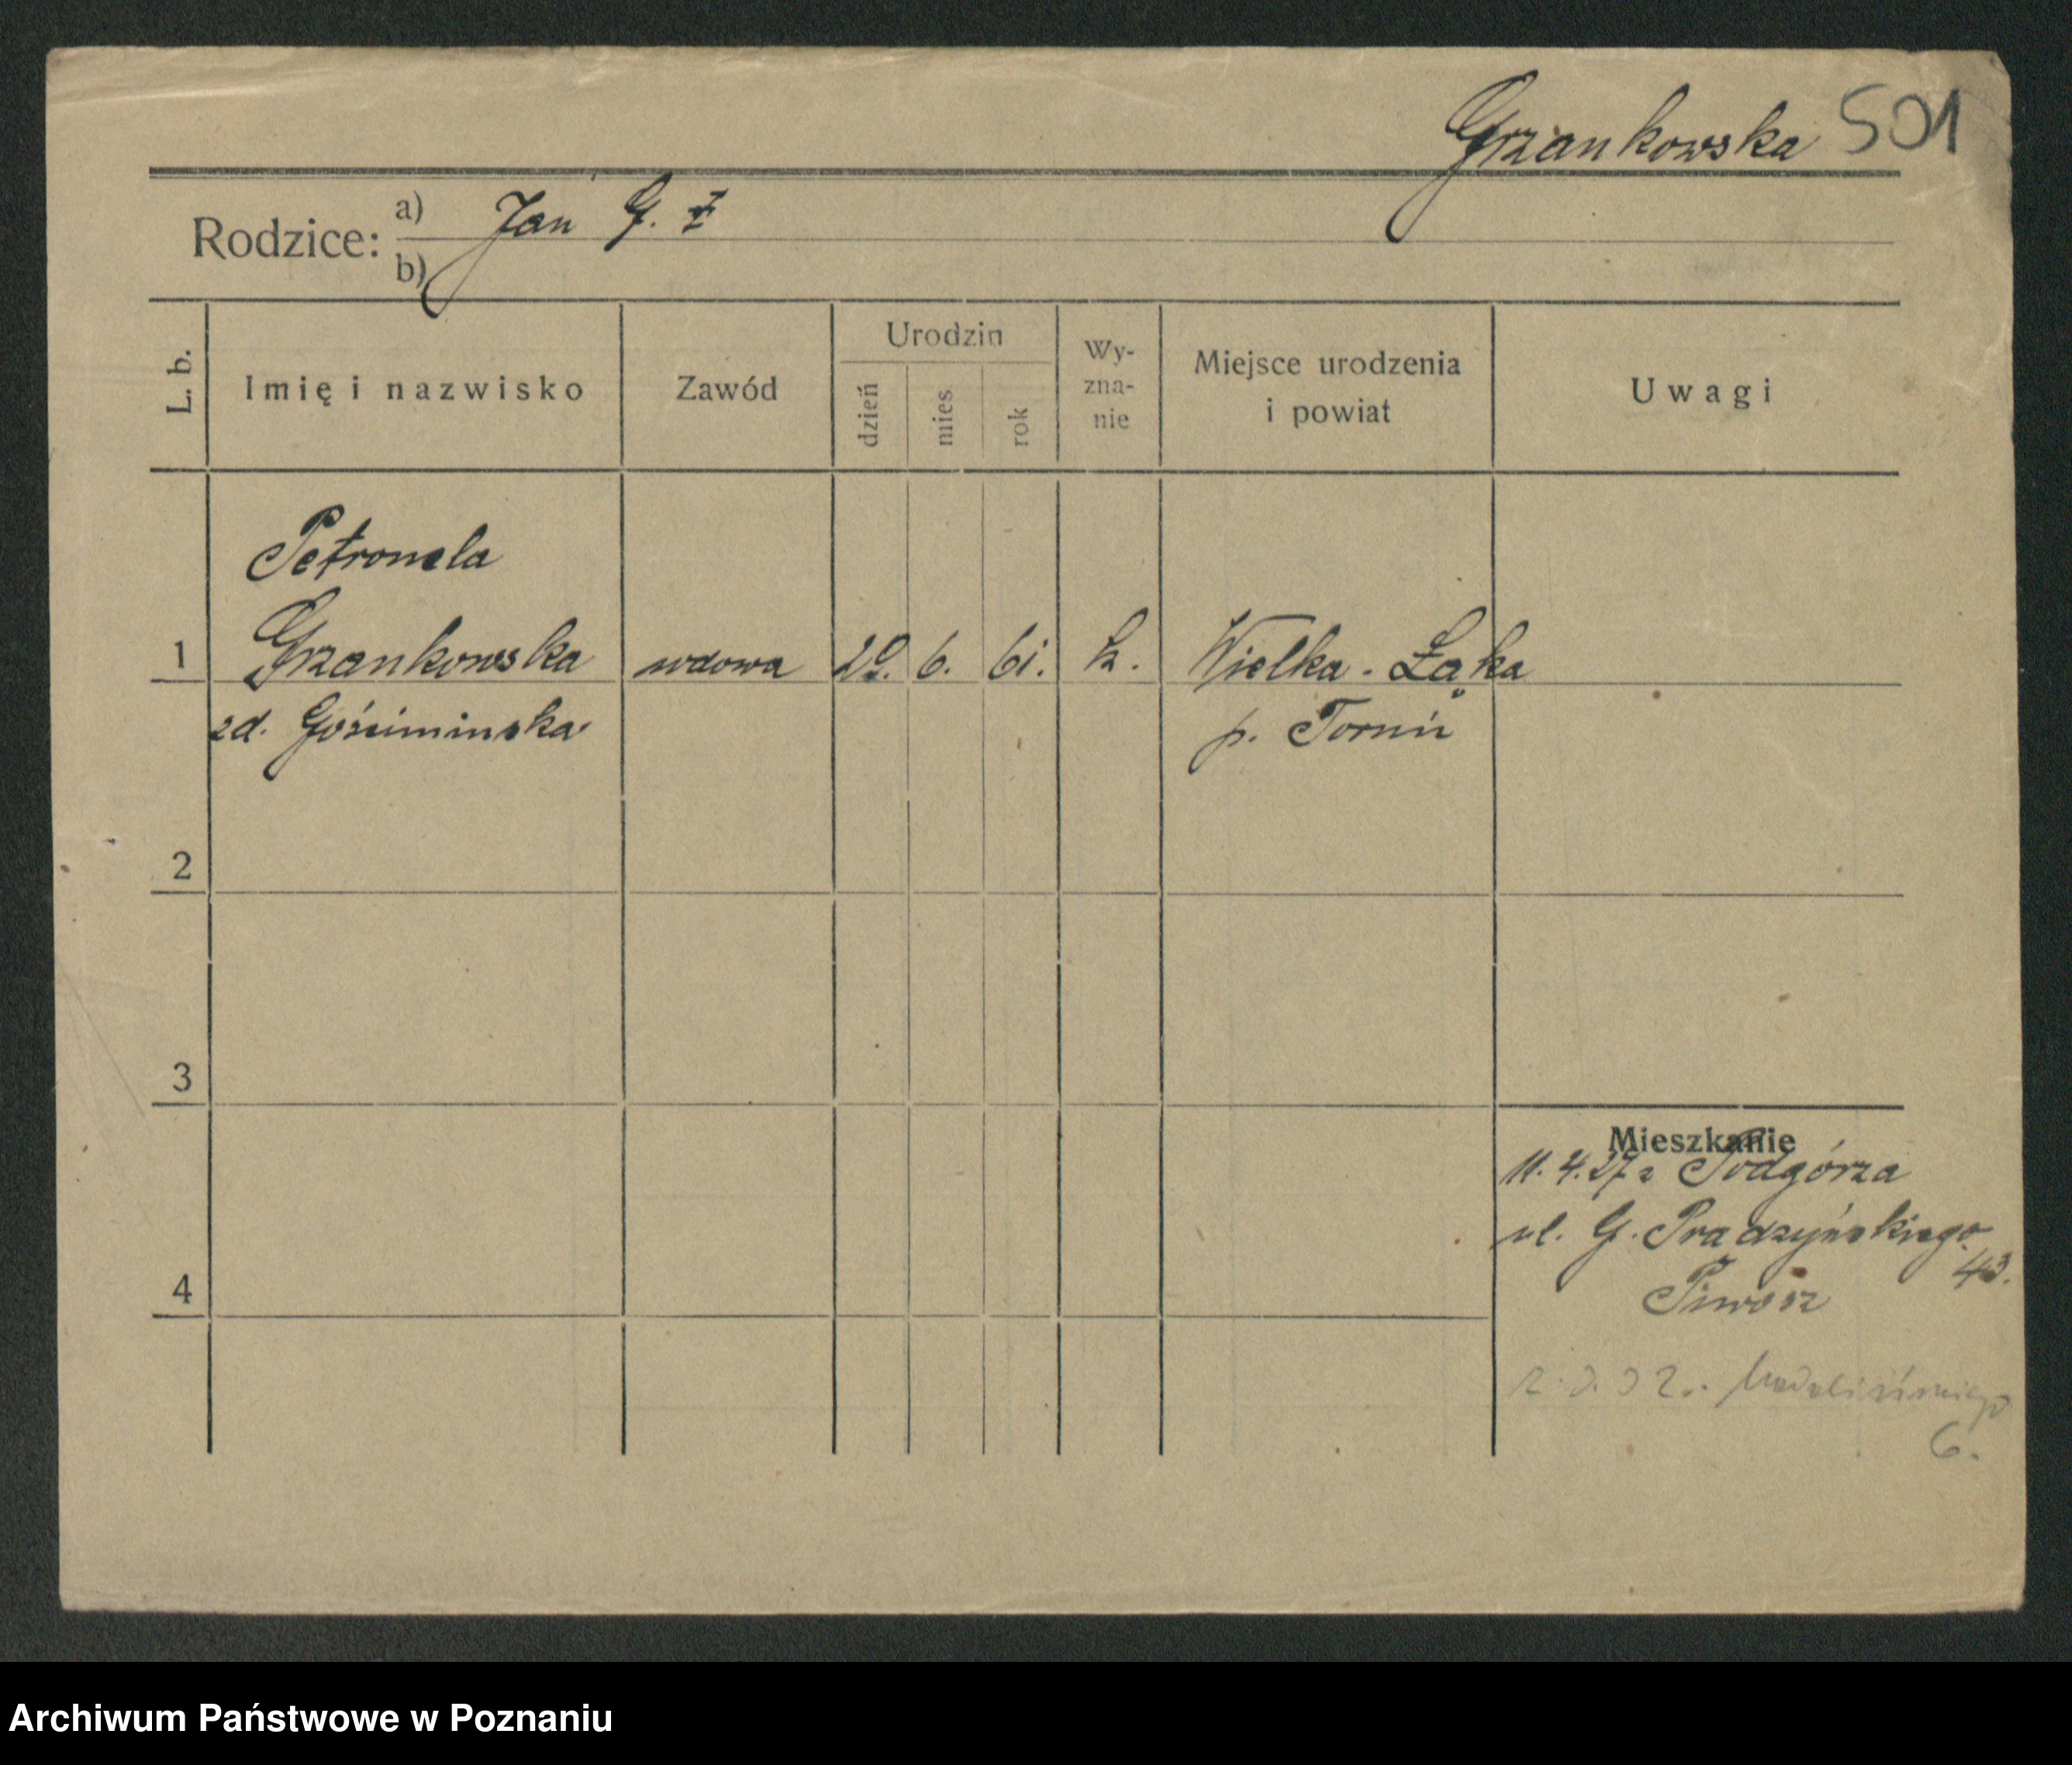 Grzankowska 501
Rodzice: a) Jan G. I
b)
L. b.
Imię i nazwisko
Zawód
Urodzin
dzień
mies
rok
Wy-
zna-
nie
Miejsce urodzenia
i powiat
Uwagi
Petronela
1 Grzankowska wdowa 29. 6. 61. k. Wielka - Łąka
zd. Gościminska p. Toruń
2
3
Mieszkanie
11. 4. 27 z Podgórza
ul. G. Prądzyńskiego
43.
4
Piwosz
6.
Archiwum Państwowe w Poznaniu